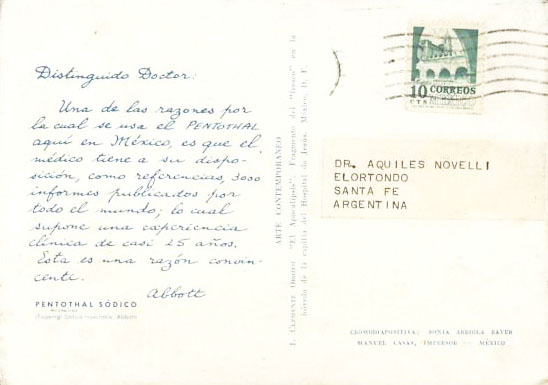 Distinguido Doctor:
Una de las razones por
la cual se usa el PENTOTHAL
aquí en México, es que el
médico tiene a su dispo-
sición, como referencias, 3000
informes publicados por
todo el mundo; lo cual
supone una experiencia
clínica de casi 25 años.
Esta es una razón convin-
cente.
Abbott
PENTOTHAL SÓDICO
Abbott)
ARTE CONTEMPORANEO
J. CLEMENTE OROZCO "El Apocalipsis". Fragmento del "fresco" en la
bóveda de la capilla del Hospital de Jesús, México, D. F.
10 CORREOS
CTS
DR. AQUILES NOVELLI
ELORTONDO
SANTA FE
ARGENTINA
CROMODIAPOSITIVA: SONIA ARRIOLA BAVER
MANUEL CASAS, IMPRESOR — MÉXICO